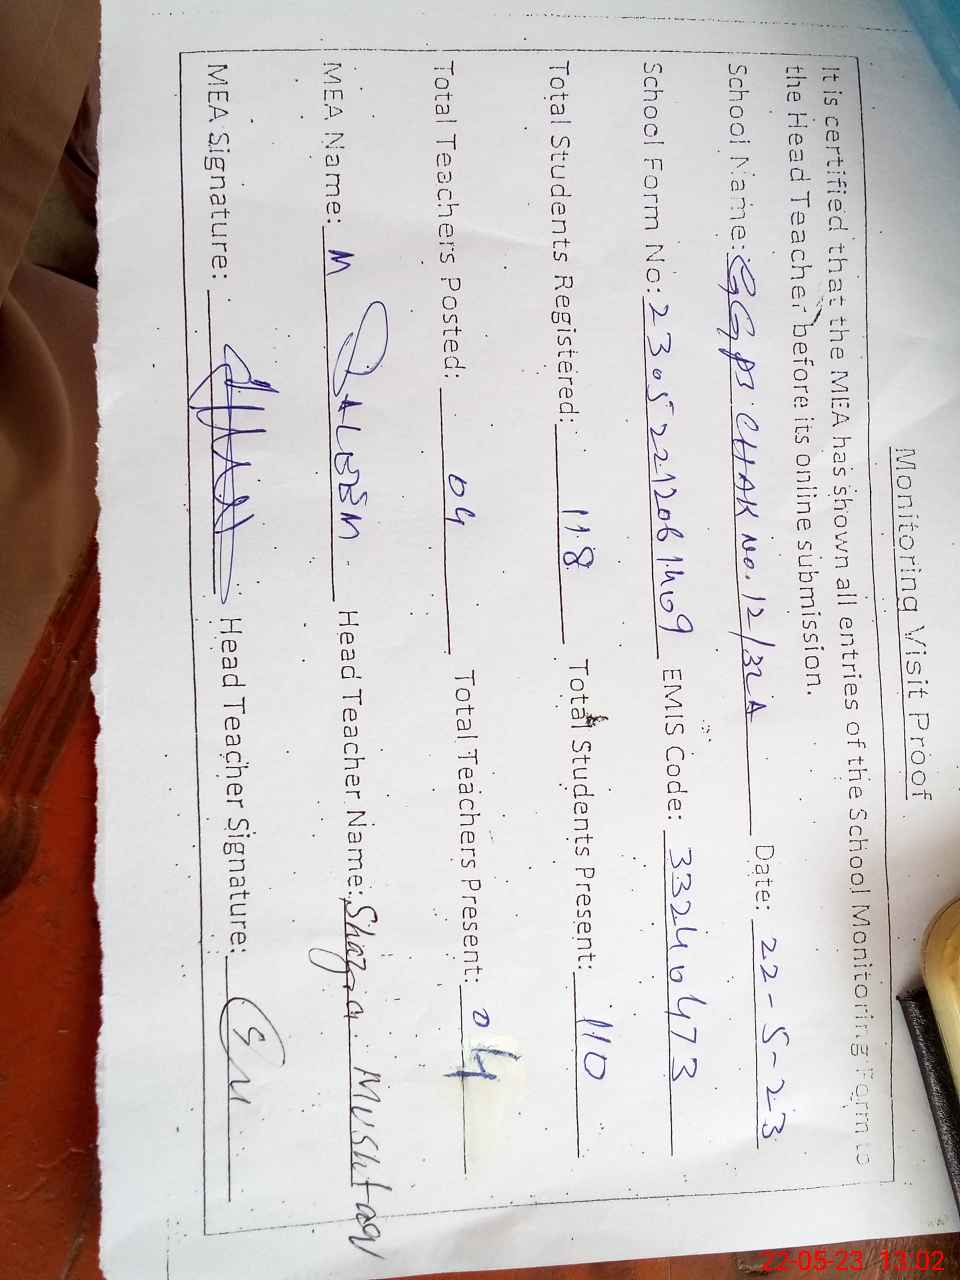 Monitoring Visit Proof
It is certified that the MEA has shown all entries of the School Monitoring Form to
the Head Teacher before its online submission.
School Name: GGPS CHAK No. 12/32A Date: 22-5-23
School Form No: EMIS Code: 33240473
Total Students Registered: 118 Total Students Present: 110
Total Teachers Posted: 04 Total Teachers Present: 04
MEA Name: M SALEEM Head Teacher Name: Shazia Mushtaq
MEA Signature: Head Teacher Signature:
22-05-23 13:02